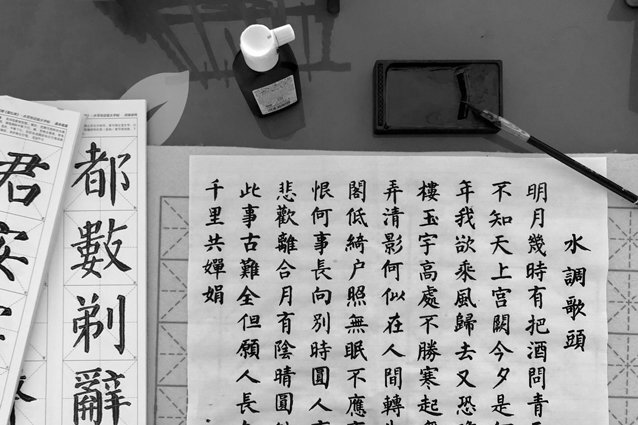 水調歌頭
明月幾時有把酒問青
不知天上宫闕今夕是
年我欲乘風歸去又恐
樓玉宇高處不勝寒起
弄清影何似在人間轉
閣低綺户照無眠不應
恨何事長向別時圓人
悲歡離合月有陰晴圓
此事古難全但願人長
千里共嬋娟
都數剃辭
君安